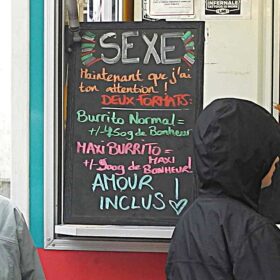 SEXE
Maintenant que j'ai
ton attention !
DEUX FORMATS:
Burrito Normal =
+/- 450g de Bonheur
MAXI BURRITO =
+/- 900g de MAXI BONHEUR!
AMOUR
INCLUS !
INFERNALE